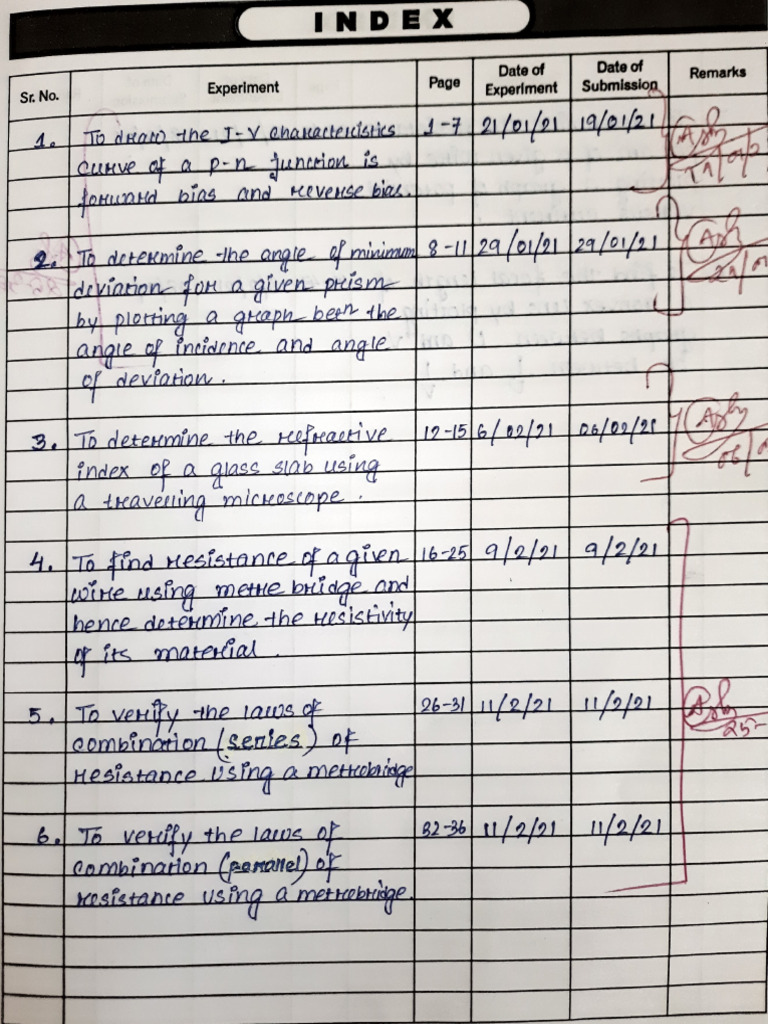 INDEX
Sr. No. Experiment Page Date of Experiment Date of Submission Remarks
1. To draw the I-V characteristics 1-7 21/01/21 19/01/21
curve of a p-n junction is
forward bias and reverse bias.
2. To determine the angle of minimum 8-11 29/01/21 29/01/21
deviation for a given prism
by plotting a graph betn the
angle of incidence and angle
of deviation.
3. To determine the refractive 12-15 6/02/21 06/02/21
index of a glass slab using
a travelling microscope.
4. To find resistance of a given 16-25 9/2/21 9/2/21
wire using metre bridge and
hence determine the resistivity
of its material.
5. To verify the laws of 26-31 11/2/21 11/2/21
combination (series) of
resistance using a metrebridge
6. To verify the laws of 32-36 11/2/21 11/2/21
combination (parallel) of
resistance using a metrebridge.